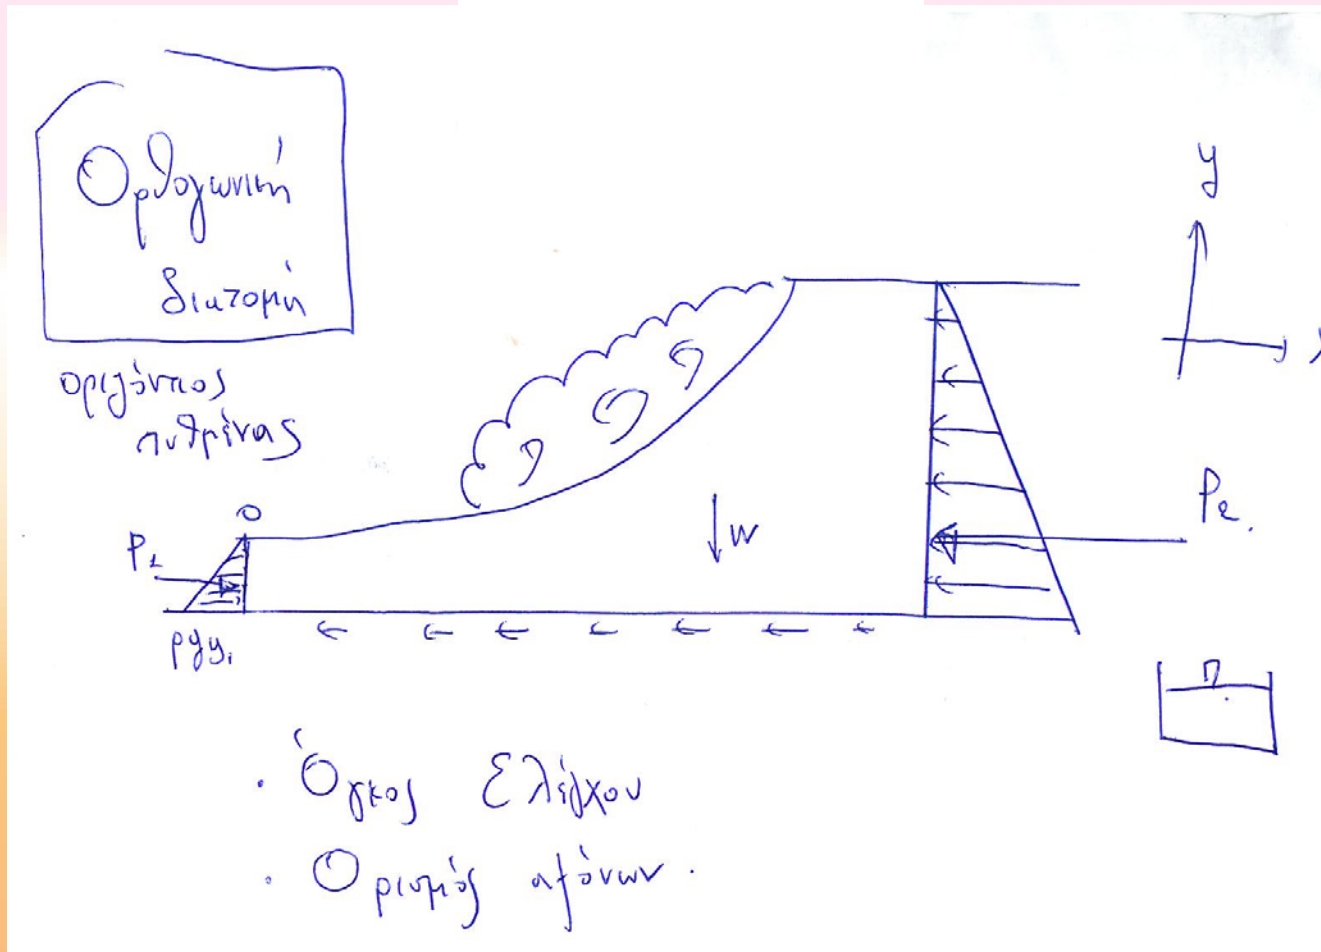 Ορθογωνική
διατομή
οριζόντιος
πυθμένας
y
x
0
P1
W
P2.
ρgy1
· Όγκος Ελέγχου
· Ορισμός αξόνων.